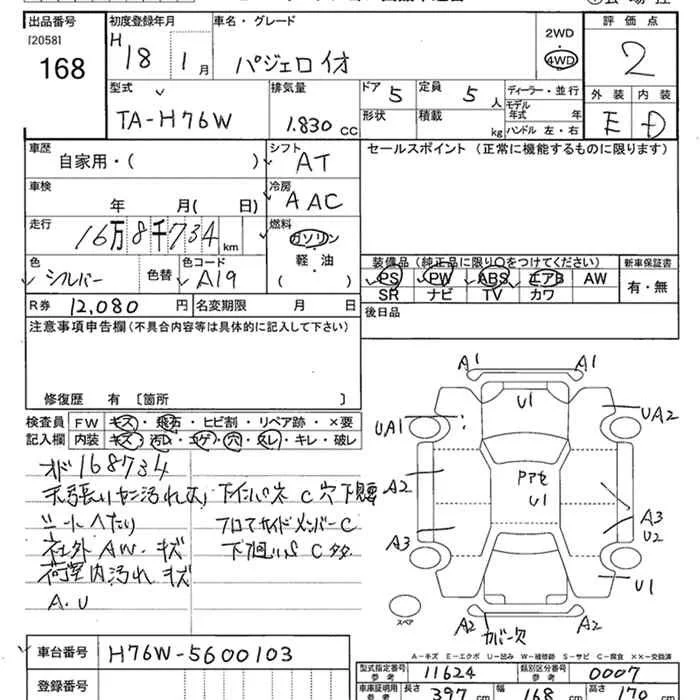 出品番号 初度登録年月 車名・グレード 2WD 評価点
[2058] H 18 1月 パジェロイオ 4WD 2
168 型式 排気量 ドア 5 定員 5人 ディーラー・並行 外装 内装
TA-H76W 1.830 CC 形状 積載 kg モデル年式 年 E D
ハンドル 左・右
車歴 シフト セールスポイント (正常に機能するものに限ります)
自家用・( ) AT
車検 冷房
年 月( 日) AAC
走行 16万8千734 km 燃料 ガソリン
軽・油
( )
装備品 (純正品に限り○をつけてください) 新車保証書
色 シルバー 色替 色コード A19 PS PW ABS エアB AW 有・無
SR ナビ TV カワ
R券 12,080 円 名変期限 月 日 後日品
注意事項申告欄 (不具合内容等は具体的に記入して下さい)
修復歴 有 〔箇所 〕
検査員 FW キズ・飛石・ヒビ割・リペア跡・×要
記入欄 内装 キズ・汚れ・コゲ・穴・スレ・キレ・破レ
168734
シートへたり
社外 AW. キズ
荷室内汚れ キズ
A.U
フロアサイドメンバーC
A1 A1
U1 UA2
UA1
A2 U1
A3 A3
U2
U1
A2 カバー欠 A2
スペア
A-キズ E-エクボ U-凹み W-補修跡 S-サビ C-腐食 ××-交換済
車台番号 H76W-5600103 型式指定番号 参考 11624 類別区分番号 参考 0007
登録番号 車庫証明用 参考 長さ 397 cm 幅 168 cm 高さ 170 cm